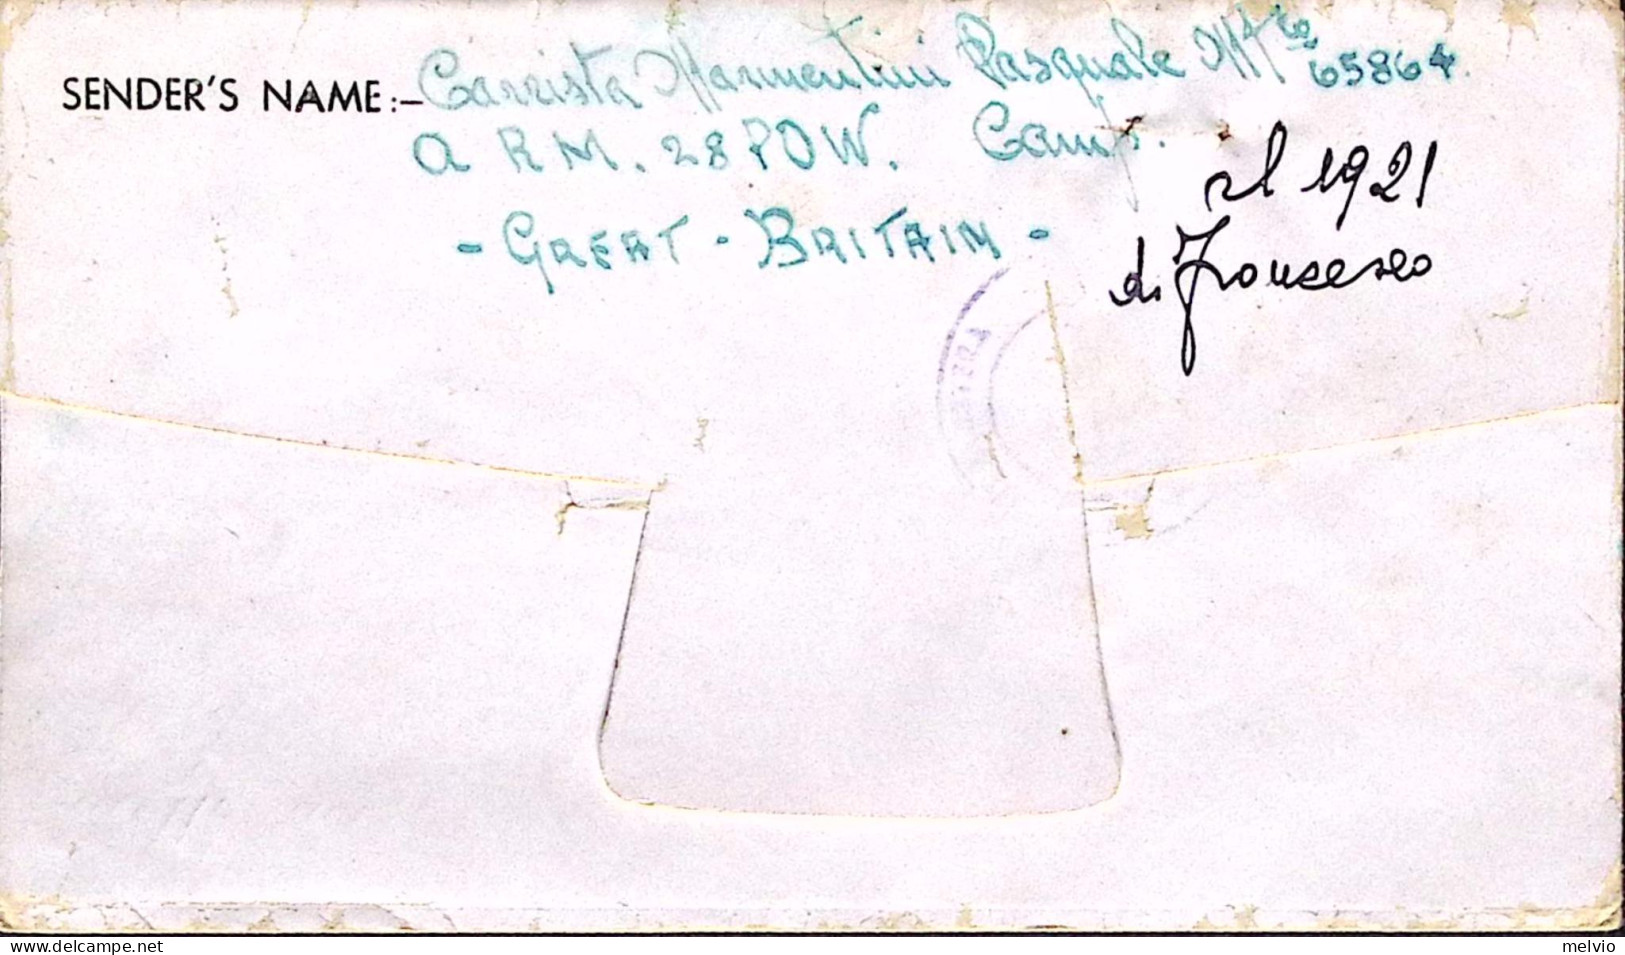 SENDER'S NAME:- Carrista Marmentini Pasquale Mtla 65864.
a RM. 28 POW. Camp.
- GREAT - BRITAIN -
cl 1921
di Francesco
melvio